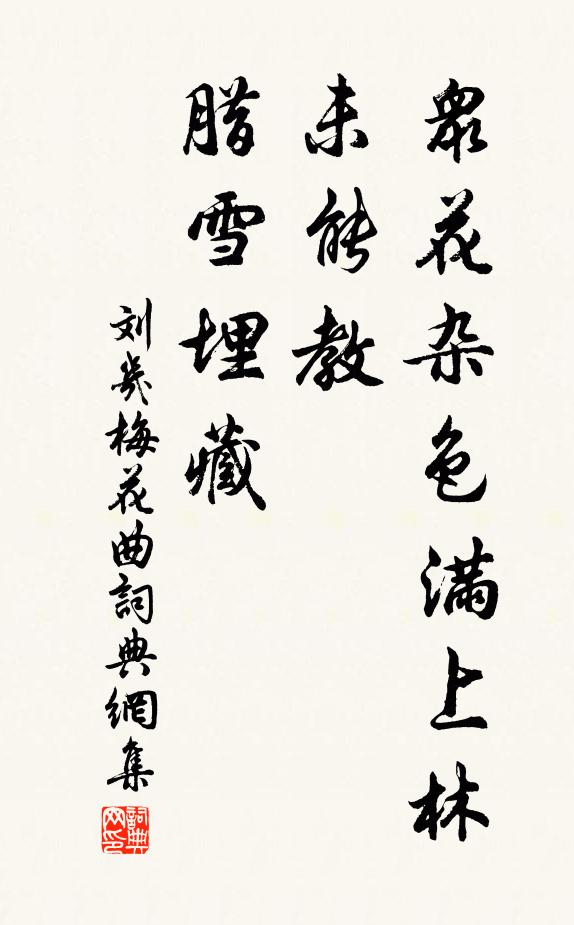 眾花杂色滿上林
未能教
腊雪埋藏
刘幾梅花曲詞典網集
詞典网印